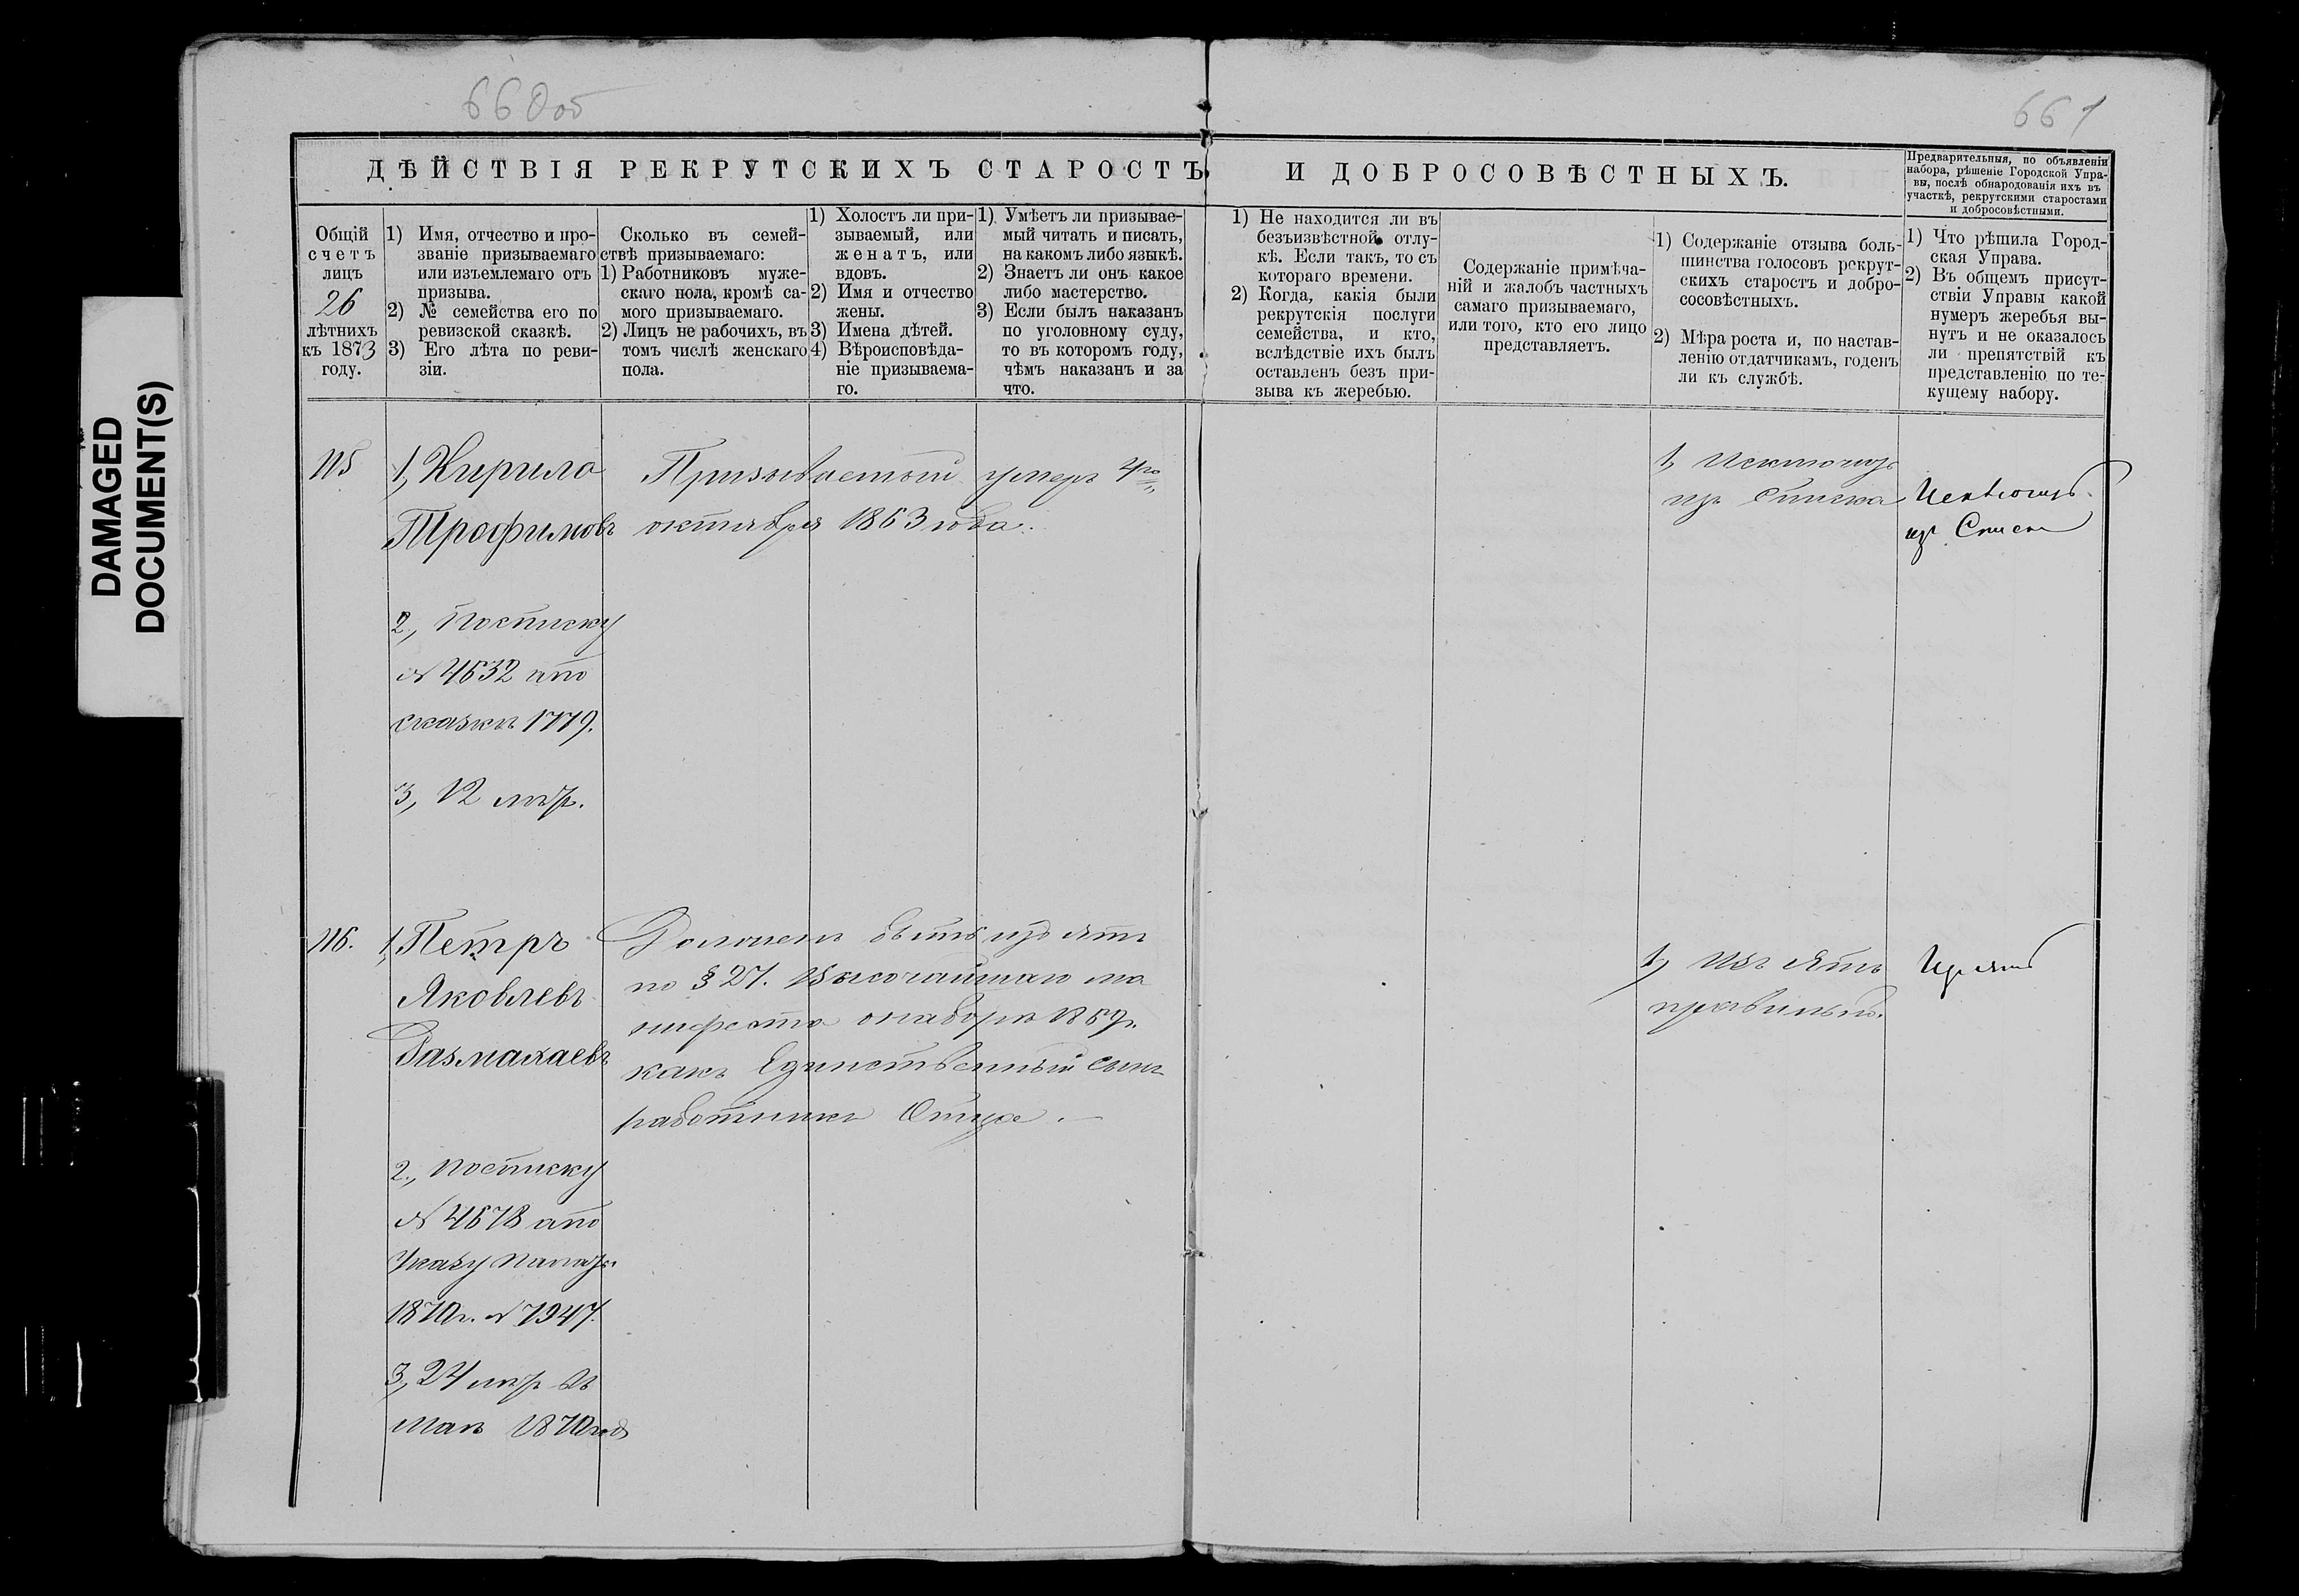 DAMAGED
DOCUMENT(S)
660 об
661
ДѢЙСТВІЯ РЕКРУТСКИХЪ СТАРОСТЪ И ДОБРОСОВѢСТНЫХЪ.
Предварительныя, по объявленіи
набора, рѣшеніе Городской Упра-
вы, послѣ обнародованія ихъ въ
участкѣ, рекрутскими старостами
и добросовѣстными.
Общій
счетъ
лицъ
26
лѣтнихъ
къ 1873
году.
1) Имя, отчество и про-
званіе призываемаго
или изъемлемаго отъ
призыва.
2) № семейства его по
ревизской сказкѣ.
3) Его лѣта по реви-
зіи.
Сколько въ семей-
ствѣ призываемаго:
1) Работниковъ муже-
скаго пола, кромѣ са-
мого призываемаго.
2) Лицъ не рабочихъ, въ
томъ числѣ женскаго
пола.
1) Холостъ ли при-
зываемый, или
женатъ, или
вдовъ.
2) Имя и отчество
жены.
3) Имена дѣтей.
4) Вѣроисповѣда-
ніе призываема-
го.
1) Умѣетъ ли призывае-
мый читать и писать,
на какомъ либо языкѣ.
2) Знаетъ ли онъ какое
либо мастерство.
3) Если былъ наказанъ
по уголовному суду,
то въ которомъ году,
чѣмъ наказанъ и за
что.
1) Не находится ли въ
безъизвѣстной отлу-
кѣ. Если такъ, то съ
котораго времени.
2) Когда, какія были
рекрутскія послуги
семейства, и кто,
вслѣдствіе ихъ былъ
оставленъ безъ при-
зыва къ жеребью.
Содержаніе примѣча-
ній и жалобъ частныхъ
самаго призываемаго,
или того, кто его лицо
представляетъ.
1) Содержаніе отзыва боль-
шинства голосовъ рекрут-
скихъ старостъ и добро-
сосовѣстныхъ.
2) Мѣра роста и, по настав-
ленію отдатчикамъ, годенъ
ли къ службѣ.
1) Что рѣшила Город-
ская Управа.
2) Въ общемъ присут-
ствіи Управы какой
нумеръ жеребья вы-
нутъ и не оказалось
ли препятствій къ
представленію по те-
кущему набору.
115
1, Кирило
Трофимовъ
2., по списку
№ 4632 а по
сказкѣ 1779.
3, 12 лѣтъ.
Призываемый умеръ 4го
октября 1863 года.
1, Исключить
изъ списка
Исключить
изъ Списка
116.
1, Петръ
Яковлевъ
Размахаевъ
2., по списку
№ 4678 а по
Указу Палаты
1870г. № 7947.
3, 24 лѣтъ въ
Маѣ 1870 год
Долженъ быть изъятъ
по § 27. Высочайшаго ма
нифеста о наборѣ 1869г.
какъ Единственный сынъ
работникъ Отца. —
1, Изъятъ
правильно.
Изъять